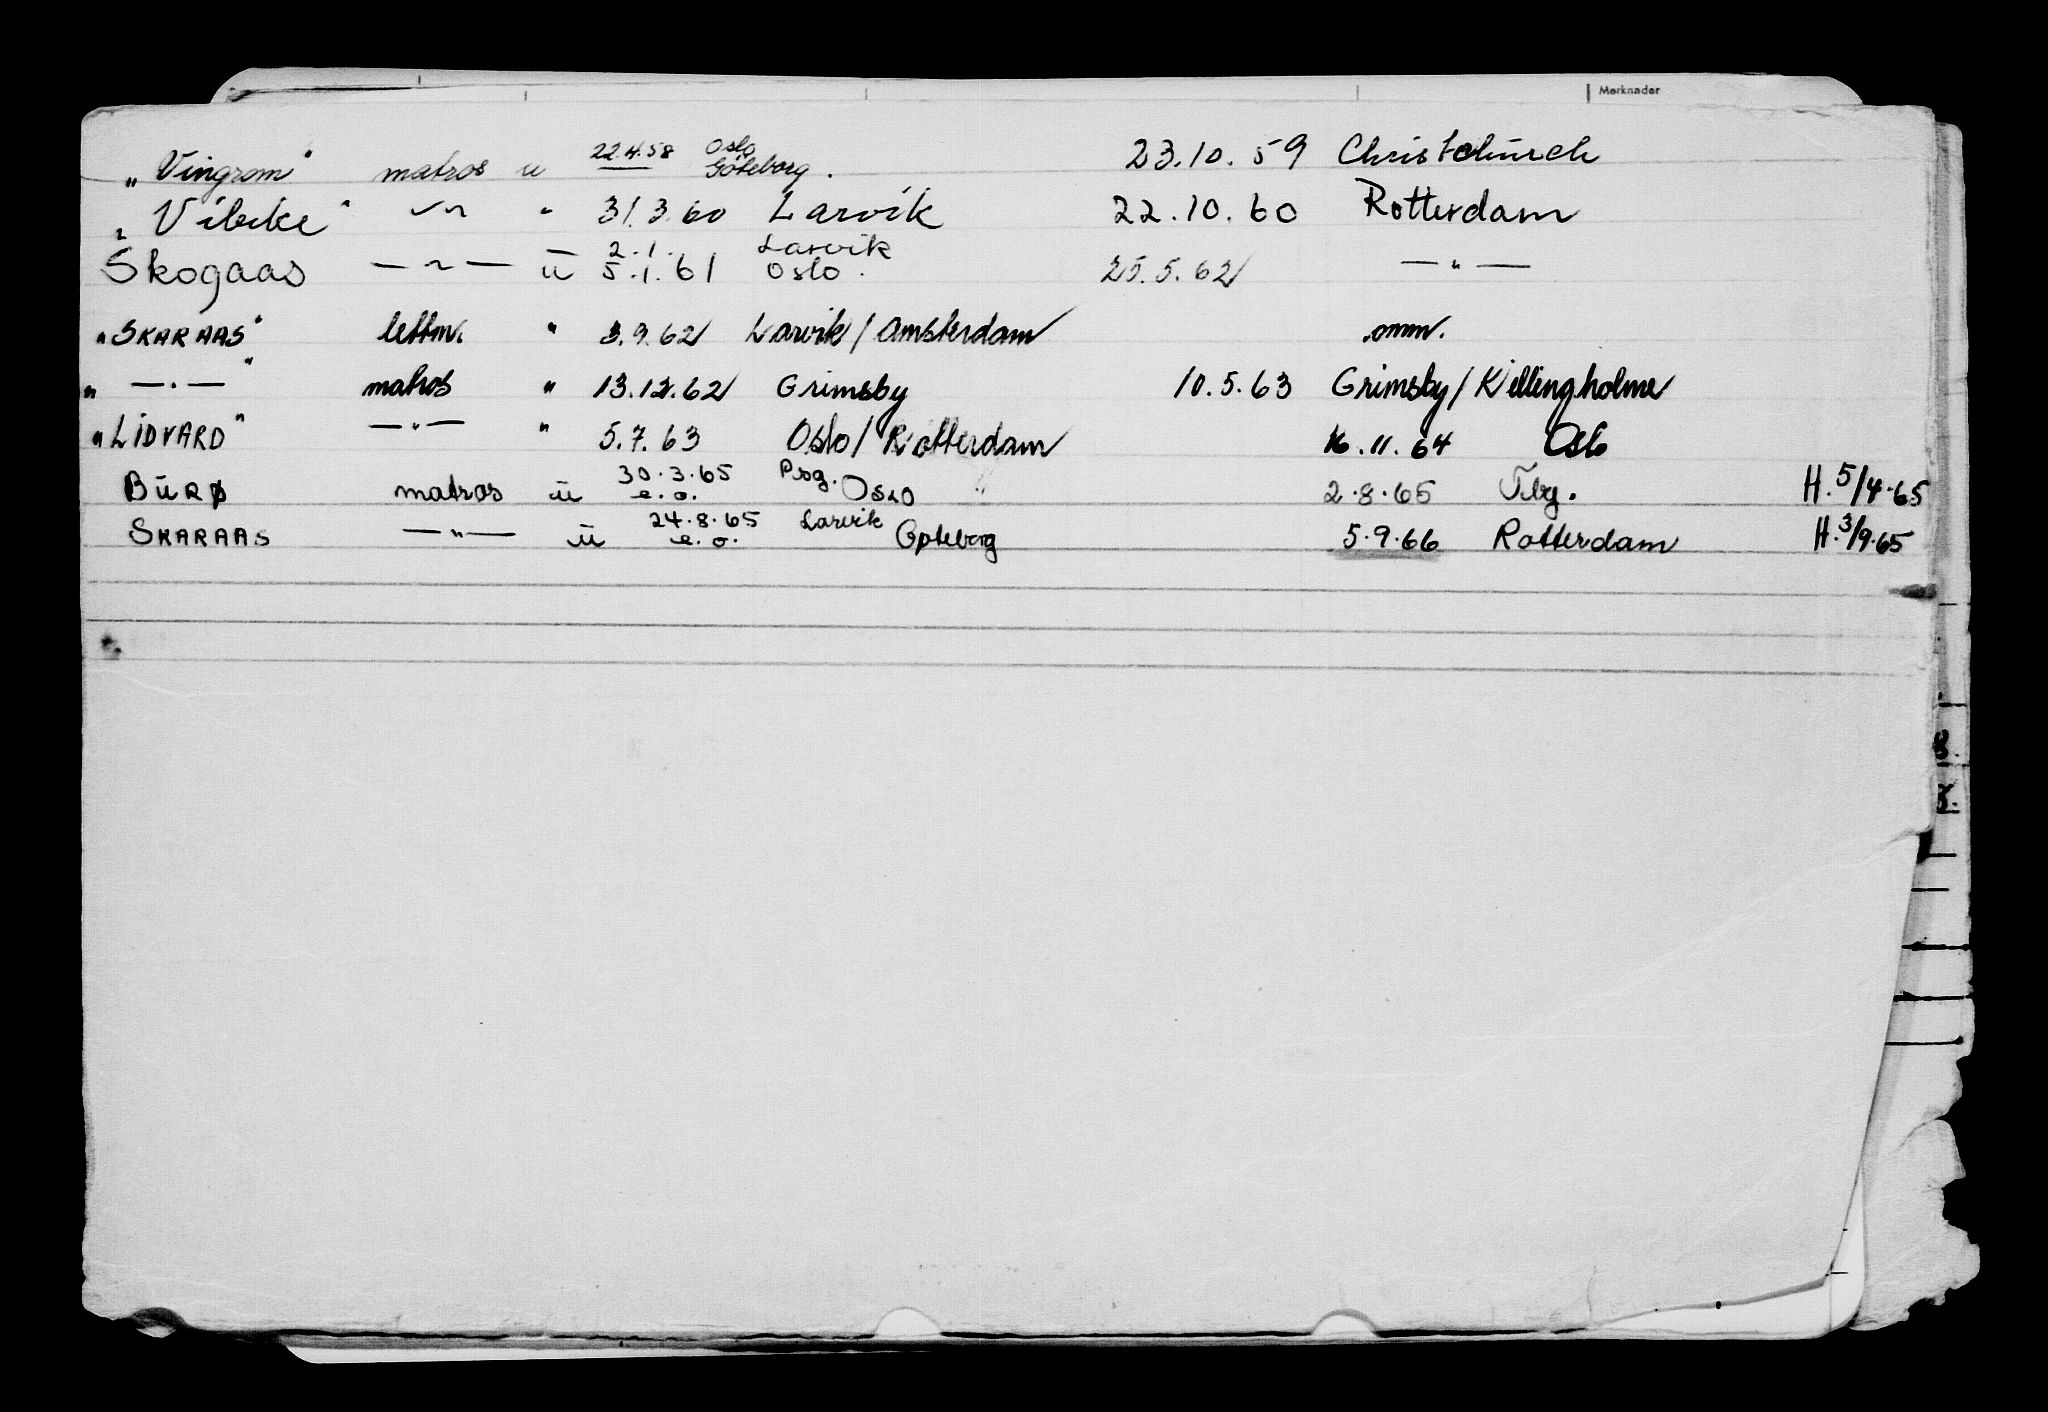 Merknader
„Vingrom" matros u 22.4.58 Oslo Göteborg. 23.10.59 Christchurch
„Vibeke" -"- " 31.3.60 Larvik 22.10.60 Rotterdam
Skogaas -"- ū 2.1. 5.1.61 Larvik Oslo. 25.5.62 -"-
"SKARAAS" lettm. " 3.9.62 Larvik/Amsterdam omm.
" -"- " matros " 13.12.62 Grimsby 10.5.63 Grimsby/Killingholme
"LIDVARD" -"- " 5.7.63 Oslo/Rotterdam 16.11.64 Oslo
BURØ matros ū 30.3.65 e.o. Psg. Oslo 2.8.65 Tbg. H.5/4.65
SKARAAS -"- ū 24.8.65 e.o. Larvik Gøteborg 5.9.66 Rotterdam H.3/9.65